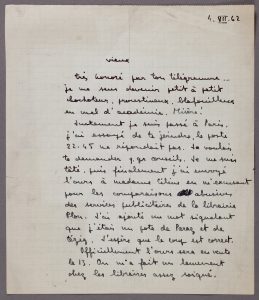 4. VII. 62
vieux
très honoré par ton télégramme...
je me sens devenir petit à petit
chochoteur, proustineux, blafouilleur
en mal d'académie. Misère!
Justement je suis passé à Paris.
j'ai essayé de te joindre, le poste
22.45 ne répondait pas. Je voulais
te demander q.ques conseils. Je me suis
tâté, puis finalement j'ai envoyé
l'ours à madame Céline en m'excusant
pour les comparaisons abusives
des services publicitaire de la librairie
Plon. J'ai ajouté un mot signalant
que j'étais un pote de Paraz et de
. J'espère que le coup est correct.
Officiellement l'ours sera en vente
le 13. On m'a fait un lancement
chez les libraires assez soigné.